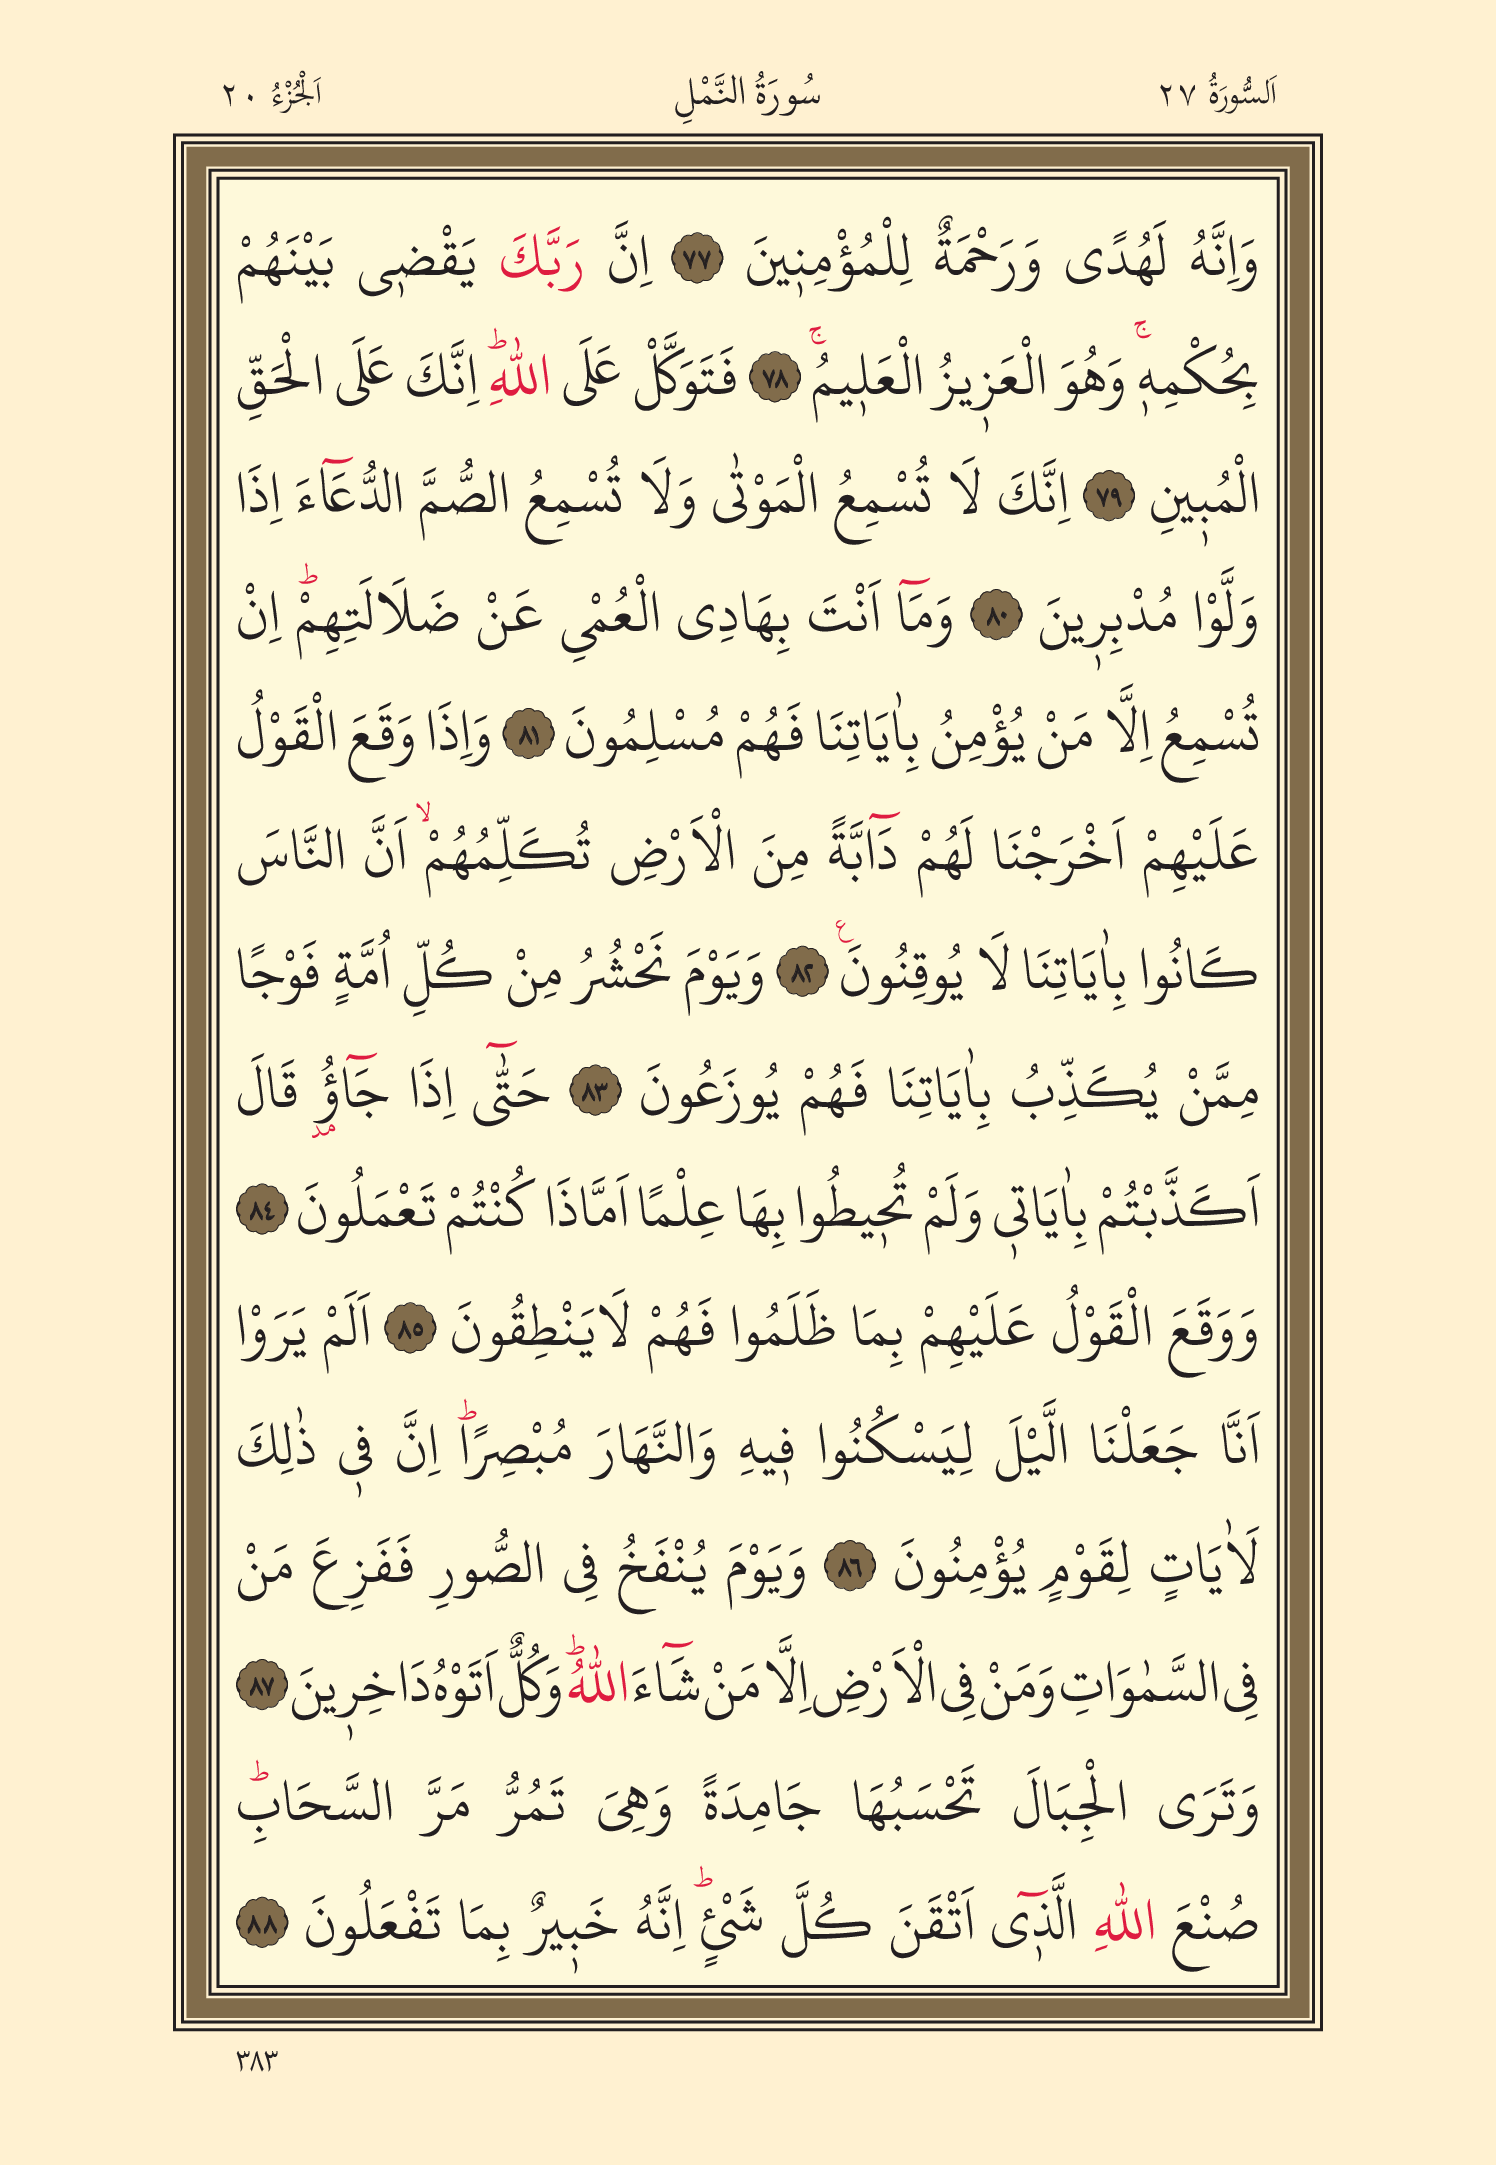 اَلسُّورَةُ ٢٧ سُورَةُ النَّمْلِ اَلْجُزْءُ ٢٠
وَاِنَّهُ لَهُدًى وَرَحْمَةٌ لِلْمُؤْمِنٖينَ ٧٧ اِنَّ رَبَّكَ يَقْضٖى بَيْنَهُمْ
بِحُكْمِهٖۚ وَهُوَ الْعَزٖيزُ الْعَلٖيمُۚ ٧٨ فَتَوَكَّلْ عَلَى اللّٰهِؕ اِنَّكَ عَلَى الْحَقِّ
الْمُبٖينِ ٧٩ اِنَّكَ لَا تُسْمِعُ الْمَوْتٰى وَلَا تُسْمِعُ الصُّمَّ الدُّعَٓاءَ اِذَا
وَلَّوْا مُدْبِرٖينَ ٨٠ وَمَٓا اَنْتَ بِهَادِى الْعُمْىِ عَنْ ضَلَالَتِهِمْؕ اِنْ
تُسْمِعُ اِلَّا مَنْ يُؤْمِنُ بِاٰيَاتِنَا فَهُمْ مُسْلِمُونَ ٨١ وَاِذَا وَقَعَ الْقَوْلُ
عَلَيْهِمْ اَخْرَجْنَا لَهُمْ دَٓابَّةً مِنَ الْاَرْضِ تُكَلِّمُهُمْۙ اَنَّ النَّاسَ
كَانُوا بِاٰيَاتِنَا لَا يُوقِنُونَ ع ٨٢ وَيَوْمَ نَحْشُرُ مِنْ كُلِّ اُمَّةٍ فَوْجًا
مِمَّنْ يُكَذِّبُ بِاٰيَاتِنَا فَهُمْ يُوزَعُونَ ٨٣ حَتّٰٓى اِذَا جَٓاؤُ۫ مد قَالَ
اَكَذَّبْتُمْ بِاٰيَاتٖى وَلَمْ تُحٖيطُوا بِهَا عِلْمًا اَمَّاذَا كُنْتُمْ تَعْمَلُونَ ٨٤
وَوَقَعَ الْقَوْلُ عَلَيْهِمْ بِمَا ظَلَمُوا فَهُمْ لَا يَنْطِقُونَ ٨٥ اَلَمْ يَرَوْا
اَنَّا جَعَلْنَا الَّيْلَ لِيَسْكُنُوا فٖيهِ وَالنَّهَارَ مُبْصِرًاؕ اِنَّ فٖى ذٰلِكَ
لَاٰيَاتٍ لِقَوْمٍ يُؤْمِنُونَ ٨٦ وَيَوْمَ يُنْفَخُ فِى الصُّورِ فَفَزِعَ مَنْ
فِى السَّمٰوَاتِ وَمَنْ فِى الْاَرْضِ اِلَّا مَنْ شَٓاءَ اللّٰهُؕ وَكُلٌّ اَتَوْهُ دَاخِرٖينَ ٨٧
وَتَرَى الْجِبَالَ تَحْسَبُهَا جَامِدَةً وَهِىَ تَمُرُّ مَرَّ السَّحَابِؕ
صُنْعَ اللّٰهِ الَّذٖٓى اَتْقَنَ كُلَّ شَىْءٍؕ اِنَّهُ خَبٖيرٌ بِمَا تَفْعَلُونَ ٨٨
٣٨٣